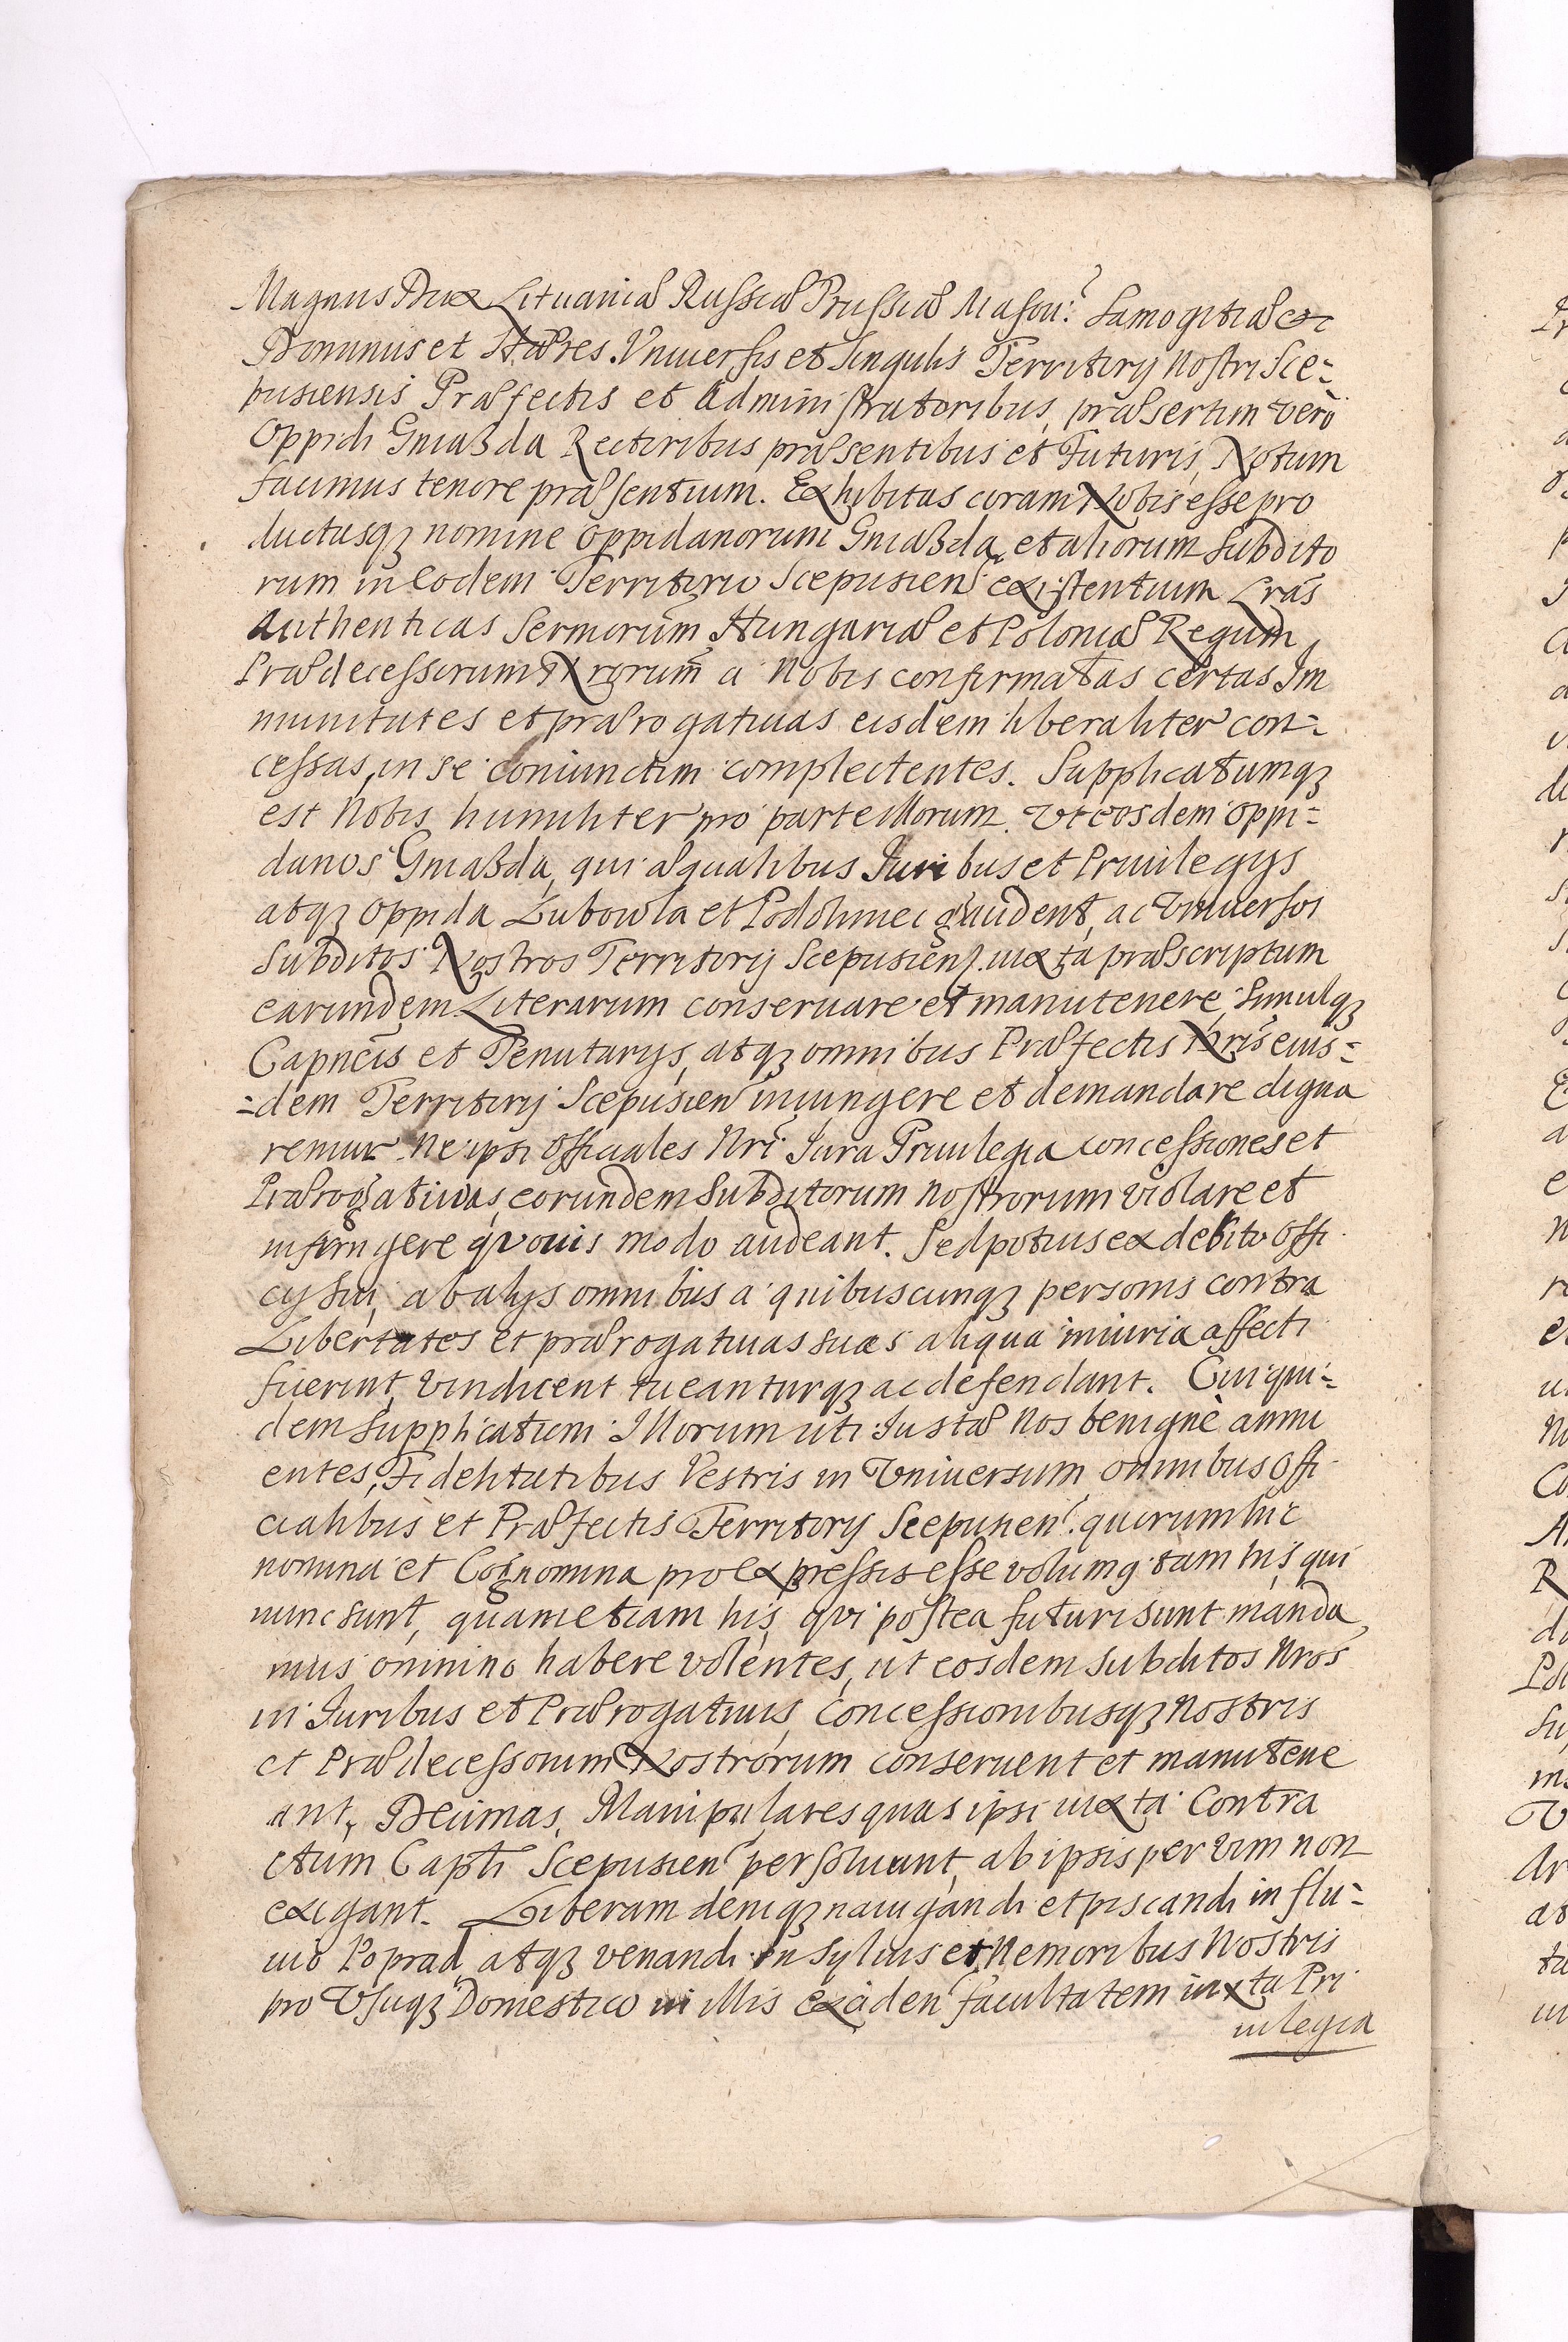 Magnus Dux Lituaniæ Russiæ Prussiæ Masou: Samogitiæ &c
Dominus et Hæres. Vniuersis et singulis Territorij nostri Sce=
pusiensis Præfectis et Administratoribus, præsertim verò
Oppidi Gniazda Rectoribus præsentibus et Futuris, Notum
facimus tenore præsentium. Exhibitas coram Nobis esse pro
ductasqꝫ nomine oppidanorum Gniazda, et aliorum Subdito
rum in eodem Territorio Scepusien existentium Lrās
Authenticas Sermorum Hungariæ et Poloniæ Regum,
Prædecessorum Nrorum a Nobis confirmatas certas Im
munitates et prærogatiuas eisdem liberaliter con=
cessas, in se coniunctim complectentes. Supplicatumqꝫ
est Nobis humiliter pro parte illorum. Vt eosdem oppi=
danos Gniazda, qui æqualibus Iuribus et Priuilegijs
atqꝫ oppida Lubowla et Podolinec gaudent, ac Vniuersos
Subditos Nostros Territorij Scepusien. iuxta præscriptum
earundem Literarum conseruare et manutenere, Simulqꝫ
Capncis et Tenutarijs, atqꝫ omnibus Præfectis Nris eius=
=dem Territorij Scepusien iniungere et demandare digna
remur. Ne ipsi officiales Nri Iura Priuilegia concessiones et
Prærogatiuas, eorundem Subditorum nostrorum violare et
infringere quouis modo audeant. Sed potius ex debito offi
cij sui, ab alijs omnibus a quibuscunqꝫ personis contra
Libertates et prærogatiuas suas aliqua iniuria affecti
fuerint, vindicent tueanturqꝫ ac defendant. Cui qui=
dem supplicationi Illorum uti Iustæ Nos benignè annu
entes, Fidelitatibus Vestris in Vniuersum, omnibus Offi
cialibus et Præfectis Territorij Scepusien. quorum hic
nomina et Cognomina pro expressis esse volumꝯ tam his qui
nunc sunt, quam etiam his, qui postea futuri sunt manda
mus omnino habere volentes, ut eosdem Subditos Nros
in Iuribus et Prærogatiuis, Concessionibusqꝫ Nostris
et Prædecessorum Nostrorum conseruent et manutene
ant, Decimas, Manipulares quas ipsi iuxta Contra
ctum Captli Scepusien persoluunt, ab ipsis per vim non
exigant. Liberam deniqꝫ nauigandi et piscandi in flu=
uio Poprad, atqꝫ venandi in syluis et Nemoribus Nostris
pro Vsuqꝫ Domestico in illis exciden facultatem iuxta Pri
uilegia